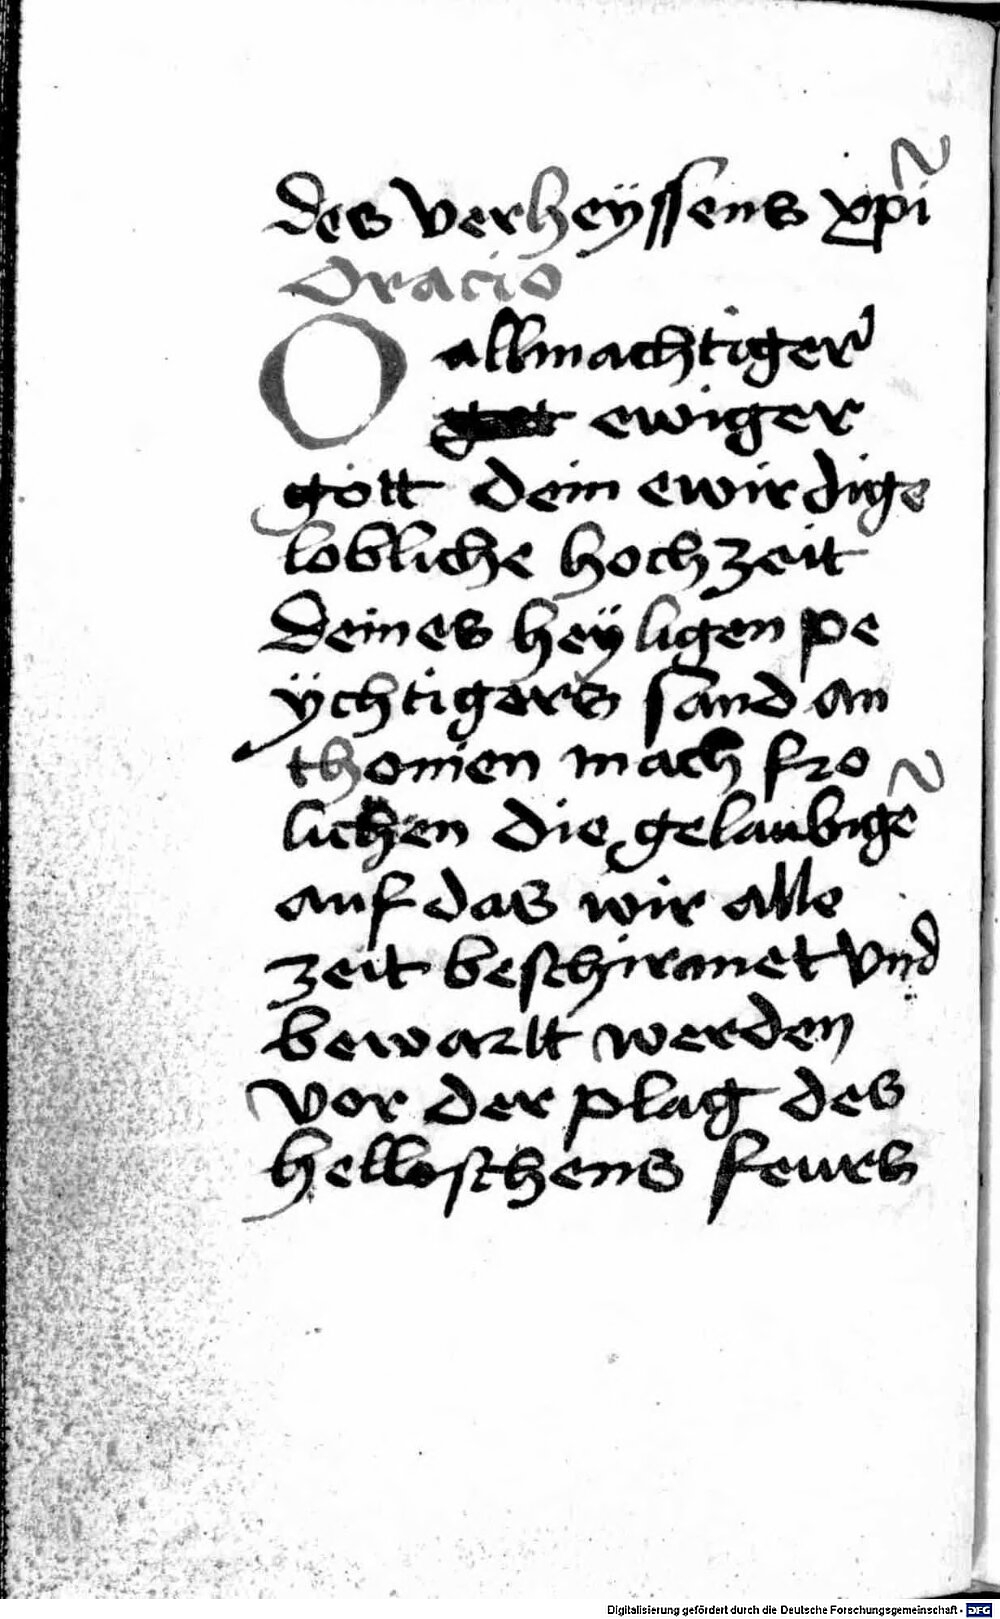 des verheyssens xp̃i
Oracio
O allmachtiger
ewiger
gott dein ewirdige
lobliche hochzeit
deines heÿligen pe
ÿchtigers sand an
thonien mach fro
lichen die gelaubigẽ
auf das wir alle
zeit beschirmet vnd
bewarlt werden
vor der plag des
helloschens fewrs
Digitalisierung gefördert durch die Deutsche Forschungsgemeinschaft - DFG